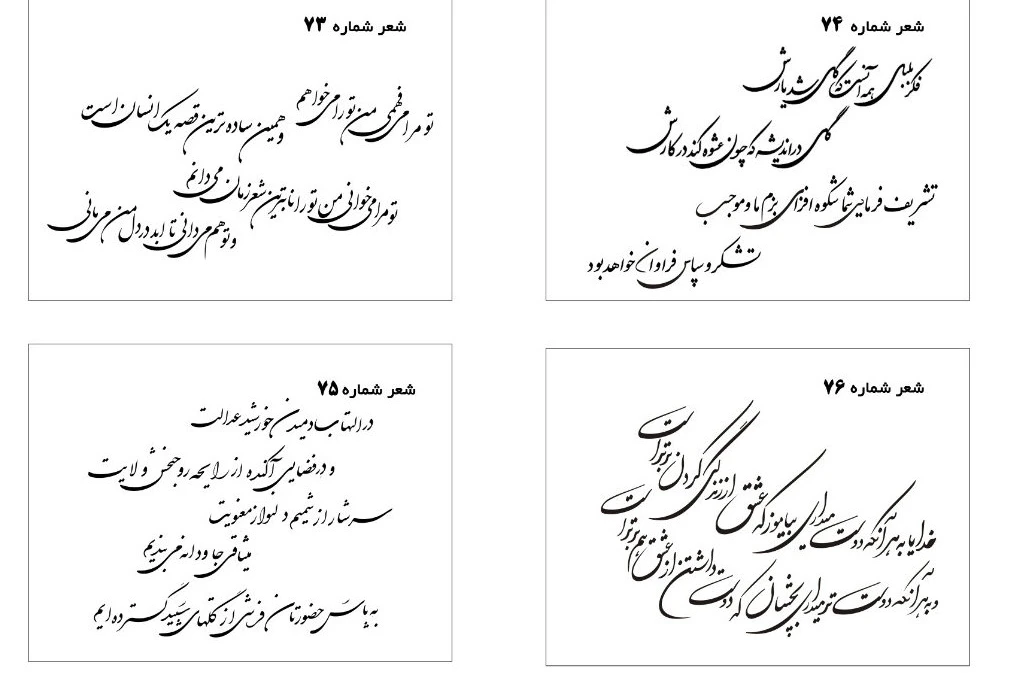 شعر شماره ۷۴
فکر بلبل همه آنست که گل شد یارش
گل در اندیشه که چون عشوه کند در کارش
تشریف فرمایی شما شکوه افزای بزم ما و موجب
تشکر و سپاس فراوان خواهد بود
شعر شماره ۷۳
تو مرا می فهمی من تو را می خواهم
و همین ساده ترین قصه یک انسان است
تو مرا می خوانی من تو را ناب ترین شعر زمان می دانم
و تو هم می دانی تا ابد در دل من می مانی
شعر شماره ۷۶
خدایا به هر آنکه دوست میداری بیاموز که عشق از زندگی کردن برتر است
و به هر آنکه دوست تر میداری بچشان که دوست داشتن از عشق هم برتر است
شعر شماره ۷۵
در التهاب دمیدن خورشید عدالت
و در فضایی آکنده از رایحه روحبخش ولایت
سرشار از شمیم دلنواز معنویت
میثاقی جاودانه می بندیم
به پاس حضورتان فرشی از گلهای سپید گسترده ایم